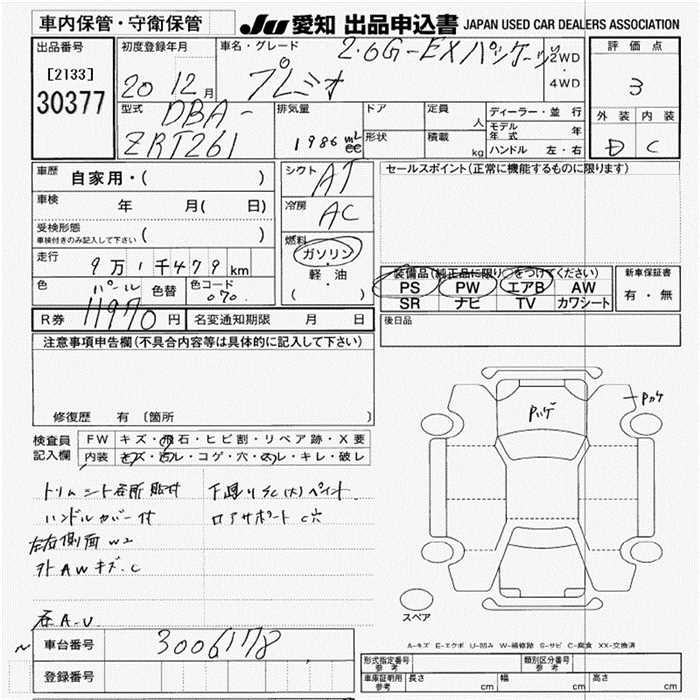 車内保管・守衛保管 JU 愛知 出品申込書 JAPAN USED CAR DEALERS ASSOCIATION
出品番号 初度登録年月 車名・グレード 2.0G-EXパッケージ 2WD・4WD 評価点
[2133] 20 12月 プレミオ 3
30377 型式 DBA-ZRT261 排気量 1986 cc ドア 定員 人 ディーラー・並行 外装 内装
形状 積載 kg モデル年式 年 D C
ハンドル 左・右
車歴 自家用・( ) シフト AT セールスポイント(正常に機能するものに限ります)
車検 年 月( 日) 冷房 AC
受検形態 ( )
車検付きのみ記入して下さい
燃料 ガソリン・軽油 ( )
走行 9万1千479km 装備品(純正品に限り○をつけてください) 新車保証書
色 パール 色替 色コード 070 PS PW エアB AW 有・無
SR ナビ TV カワシート
R券 11970円 名変通知期限 月 日 後日品
注意事項申告欄(不具合内容等は具体的に記入して下さい)
Pハゲ Pカケ
修復歴 有 〔箇所 〕
検査員記入欄 FW キズ・飛石・ヒビ割・リペア跡・X要
内装 キズ・汚レ・コゲ・穴・スレ・キレ・破レ
トリム シート 各所
ハンドルカバー付 ロアサポート C穴
左右側面 W2
外AWキズ.C
各A.U
スペア
A-キズ E-エクボ U-凹み W-補修跡 S-サビ C-腐食 XX-交換済
車台番号 3006178 形式指定番号 参考 類別区分番号 参考
登録番号 車庫証明用 参考 長さ cm 幅 cm 高さ cm